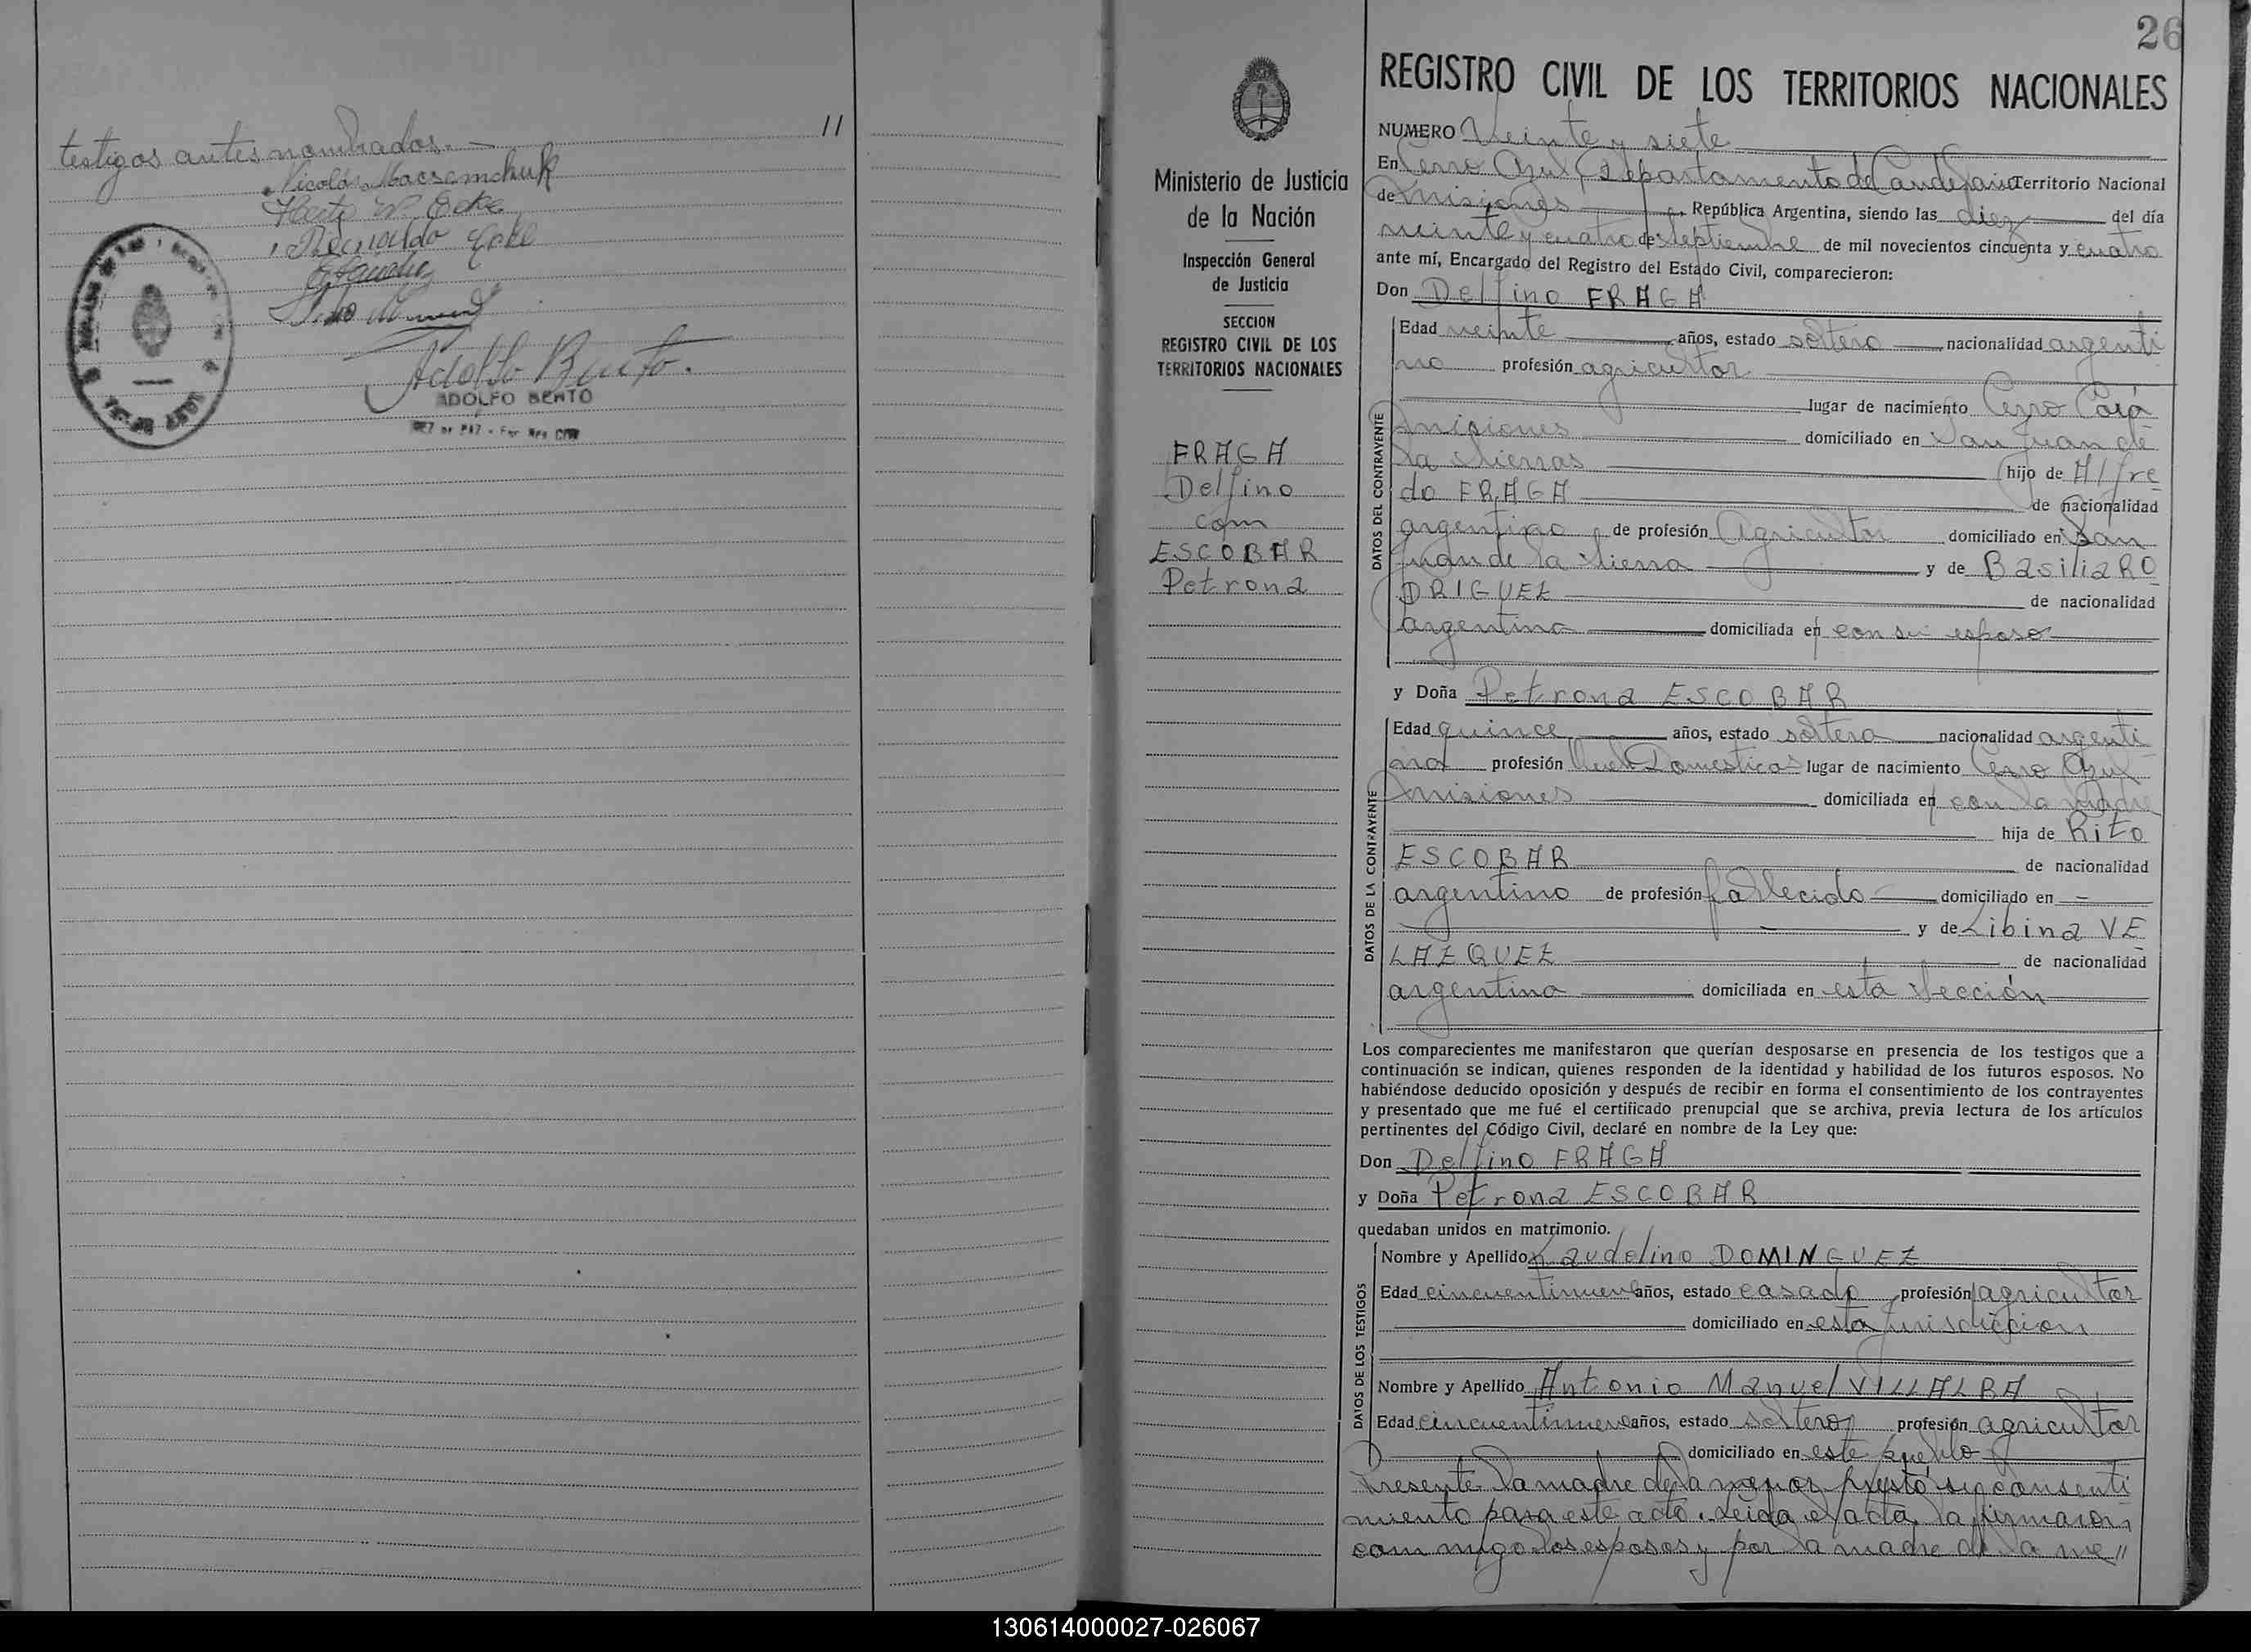 11
testigos antes nombrados.—
Nicolás
Adolfo Bento.
ADOLFO BENTO
26
REGISTRO CIVIL DE LOS TERRITORIOS NACIONALES
Ministerio de Justicia
de la Nación
Inspección General
de Justicia
SECCION
REGISTRO CIVIL DE LOS
TERRITORIOS NACIONALES
FRAGA
Delfino
com
ESCOBAR
Petrona
NUMERO Veinte y siete
En Cerro Azul, Departamento de Candelaria Territorio Nacional
de Misiones, República Argentina, siendo las diez del día
veinte y cuatro de Septiembre de mil novecientos cincuenta y cuatro
ante mí, Encargado del Registro del Estado Civil, comparecieron:
Don Delfino FRAGA
DATOS DEL CONTRAYENTE
Edad veinte años, estado soltero nacionalidad argenti
no profesión agricultor
lugar de nacimiento Cerro Corá
Misiones domiciliado en San Juan de
la Sierras hijo de Alfre
do FRAGA de nacionalidad
argentino de profesión Agricultor domiciliado en San
Juan de la Sierra y de Basilia RO
DRIGUEZ de nacionalidad
argentina domiciliada en con su esposo
y Doña Petrona ESCOBAR
DATOS DE LA CONTRAYENTE
Edad quince años, estado soltera nacionalidad argenti
na profesión Domesticos lugar de nacimiento Cerro Azul
Misiones domiciliada en con la Madre
hija de Rito
ESCOBAR de nacionalidad
argentino de profesión fallecido domiciliado en —
y de Libina VE
LAZQUEZ de nacionalidad
argentina domiciliada en esta Sección
Los comparecientes me manifestaron que querían desposarse en presencia de los testigos que a
continuación se indican, quienes responden de la identidad y habilidad de los futuros esposos. No
habiéndose deducido oposición y después de recibir en forma el consentimiento de los contrayentes
y presentado que me fué el certificado prenupcial que se archiva, previa lectura de los artículos
pertinentes del Código Civil, declaré en nombre de la Ley que:
Don Delfino FRAGA
y Doña Petrona ESCOBAR
quedaban unidos en matrimonio.
DATOS DE LOS TESTIGOS
Nombre y Apellido Laudelino DOMINGUEZ
Edad cincuentinueve años, estado casado profesión agricultor
domiciliado en esta jurisdiccion
Nombre y Apellido Antonio Manuel VILLALBA
Edad cincuentinueve años, estado soltero profesión agricultor
domiciliado en este pueblo
Presente la madre de la menor prestó su consenti
miento para este acto. Leida el acta, la firmaron
com migo los esposos y por la madre de la me"
130614000027-026067